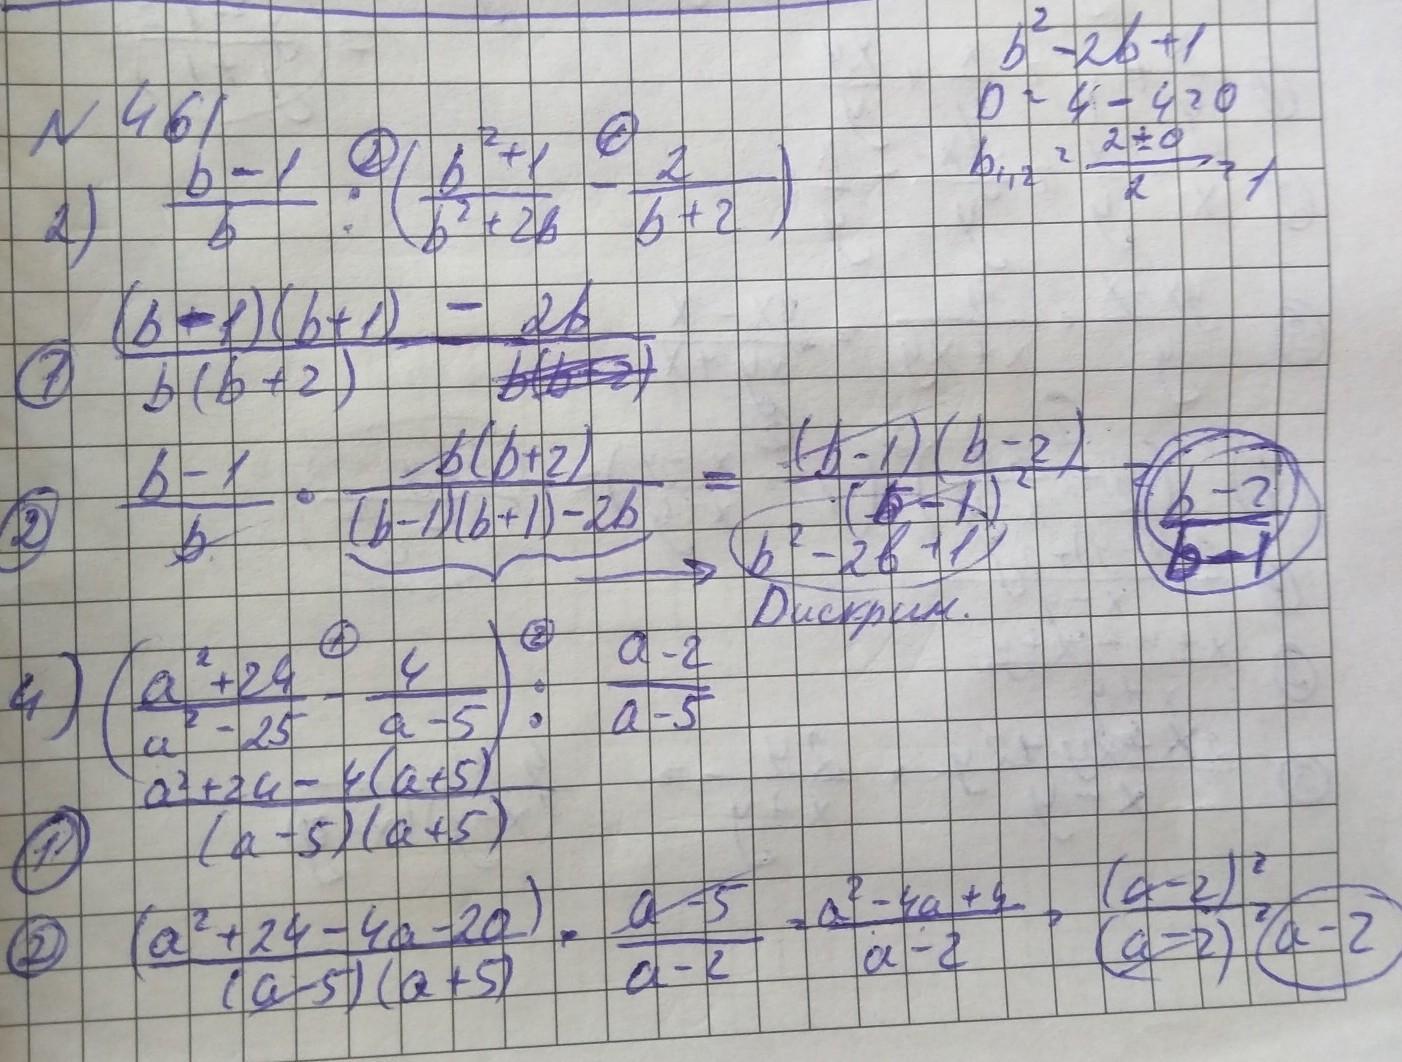 b² - 2b + 1
D = 4 - 4 = 0
b₁,₂ = (2 ± 0)/2 = 1
N 461
2) (b - 1)/b :② ((b² + 1)/(b² + 2b) -① 2/(b + 2))
① ((b - 1)(b + 1) - 2b)/(b(b + 2))
② (b - 1)/b · b(b + 2)/((b - 1)(b + 1) - 2b) = (b - 1)(b - 2)/(b - 1)² = (b - 2)/(b - 1)
→ b² - 2b + 1
Дискрим.
4) ((a² + 24)/(a² - 25) -① 4/(a - 5)) :② (a - 2)/(a - 5)
① (a² + 24 - 4(a + 5))/((a - 5)(a + 5))
② (a² + 24 - 4a - 20)/((a - 5)(a + 5)) · (a - 5)/(a - 2) = (a² - 4a + 4)/(a - 2) = (a - 2)²/(a - 2) = a - 2